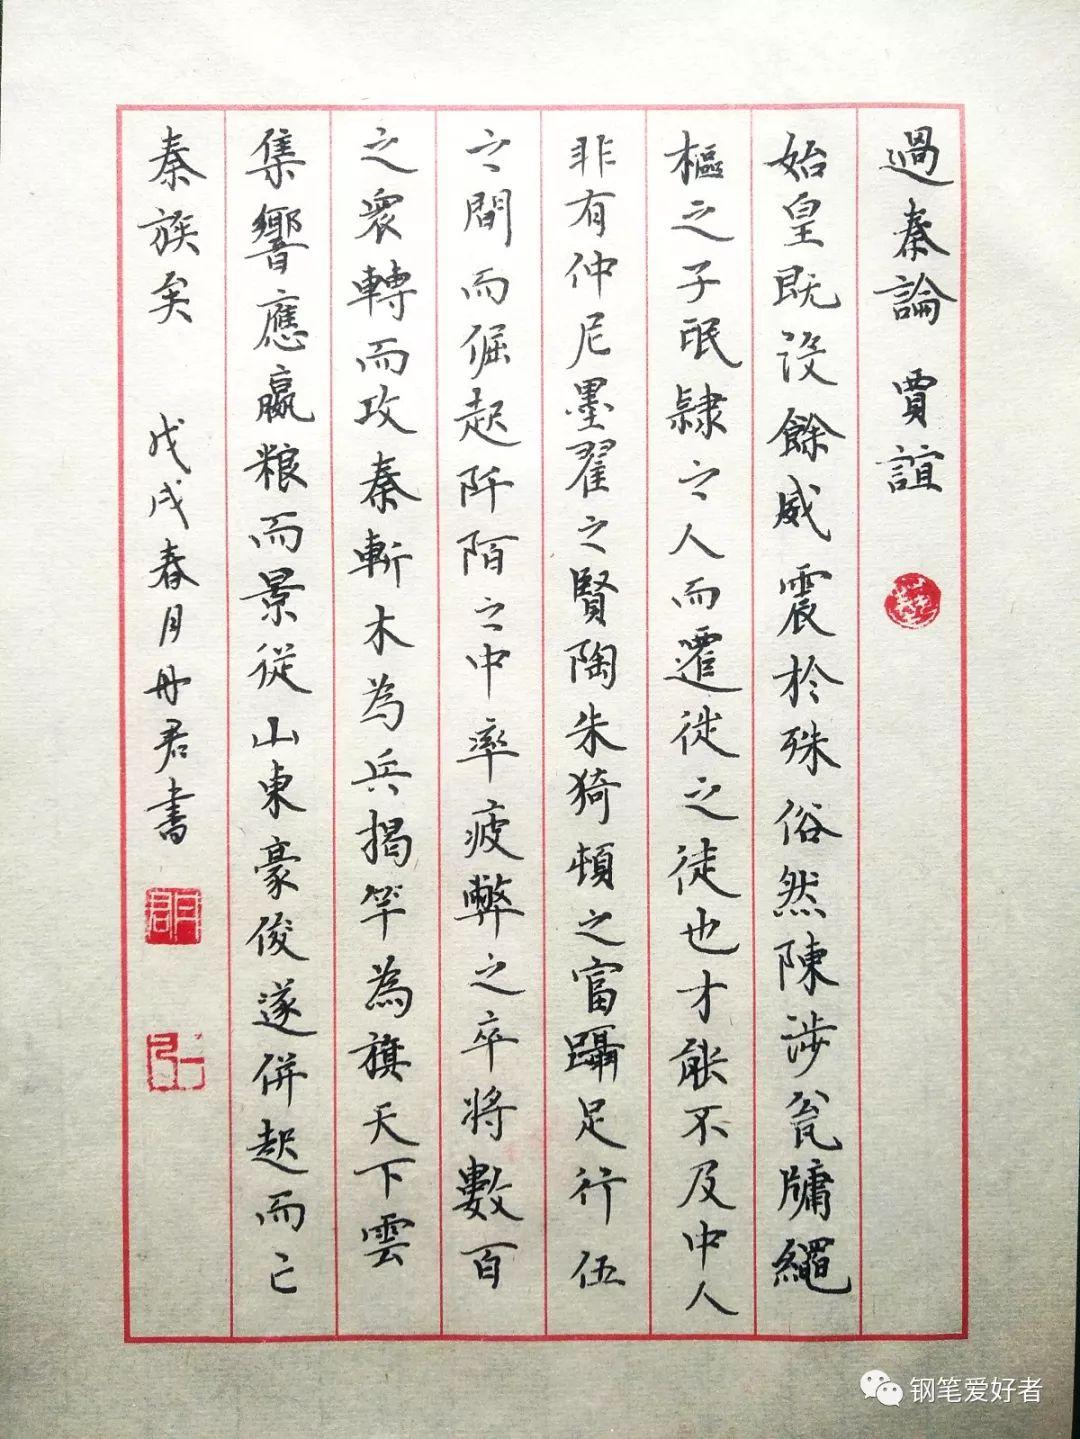 過秦論 賈誼
始皇既沒餘威震於殊俗然陳涉瓮牖繩
樞之子氓隸之人而遷徙之徒也才能不及中人
非有仲尼墨翟之賢陶朱猗頓之富躡足行伍
之間而倔起阡陌之中率疲弊之卒將數百
之衆轉而攻秦斬木為兵揭竿為旗天下雲
集響應贏粮而景從山東豪俊遂併起而亡
秦族矣 戊戌春月丹君書
钢笔爱好者